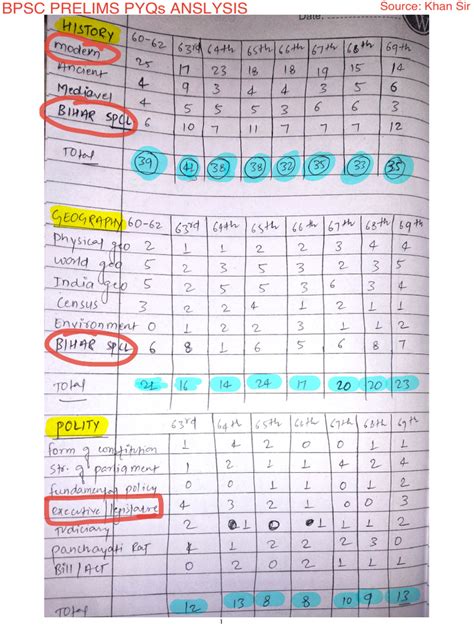 BPSC PRELIMS PYQs ANSLYSIS Source: Khan Sir
Date:
HISTORY 60-62 63rd 64th 65th 66th 67th 68th 69th
modern 25 17 23 18 18 19 15 14
Ancient 4 9 3 4 4 3 5 6
Mediavel 4 5 5 5 3 6 6 3
BIHAR SPCL 6 10 7 11 7 7 7 12
TOtal 39 41 38 38 32 35 33 35
GEOGRAPHY 60-62 63rd 64th 65th 66th 67th 68th 69th
physical geo 2 1 1 2 2 3 4 4
world geo 5 2 3 5 3 2 3 5
India geo 5 2 5 5 3 6 3 4
Census 3 2 2 4 1 2 1 1
Environment 0 1 2 2 3 1 1 2
BIHAR SPCL 6 8 1 6 5 6 8 7
TOtal 21 16 14 24 17 20 20 23
POLITY 63rd 64th 65th 66th 67th 68th 69th
form of constitution 1 4 2 0 0 1 1
str. of parliament 1 2 1 1 4 2 4
fundamental policy 0 0 1 1 0 1
executive legislature 4 3 2 1 0 0 3
Judiciary 2 1 0 1 1 1
panchayati Rat 1 2 2 2 3 0
Bill/ACT 0 2 0 2 1 1
TOtal 12 13 8 8 10 9 13
1